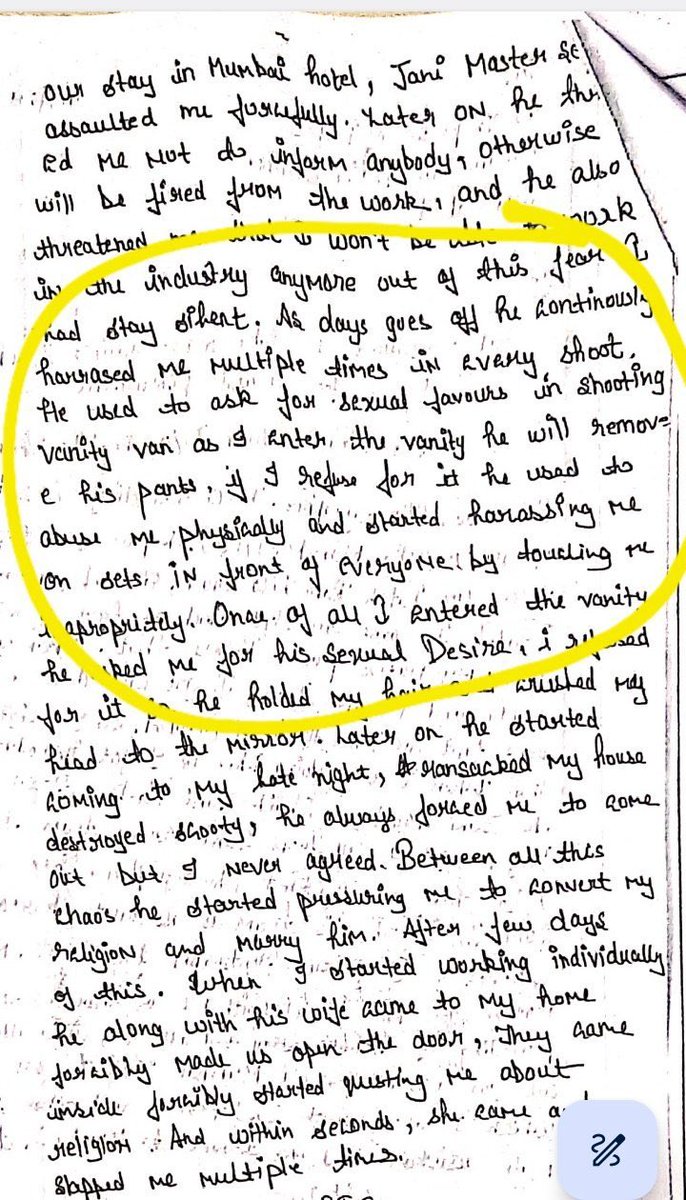 our stay in Mumbai hotel, Jani Master se
assaulted me forcefully. Later ON he thr
ed me not do inform anybody, otherwise
will be fired from the work, and he also
threatened won't be work
in the industry anymore out of this fear I
had stay silent. As days goes off he continously
harrased me multiple times in every shoot.
He used to ask for sexual favours in shooting
vanity van as I enter the vanity he will remov=
e his pants, if I refuse for it he used to
abuse me physically and started harassing me
on sets in front of everyone by touching me
apropritely. Once of all I entered the vanity
he me for his sexual Desire, i refused
for it he holded my hair crushed my
head to the mirror. Later on he started
coming to my late night, ransacked my house
destroyed scooty, he always forced me to come
out but I never agreed. Between all this
chaos he started pressuring me to convert my
religion and marry him. After few days
of this. When I started working individually
he along with his wife came to my home
forcibly made us open the door, They came
inside forcibly started questing me about
religion. And within seconds, she came
slapped me multiple times.